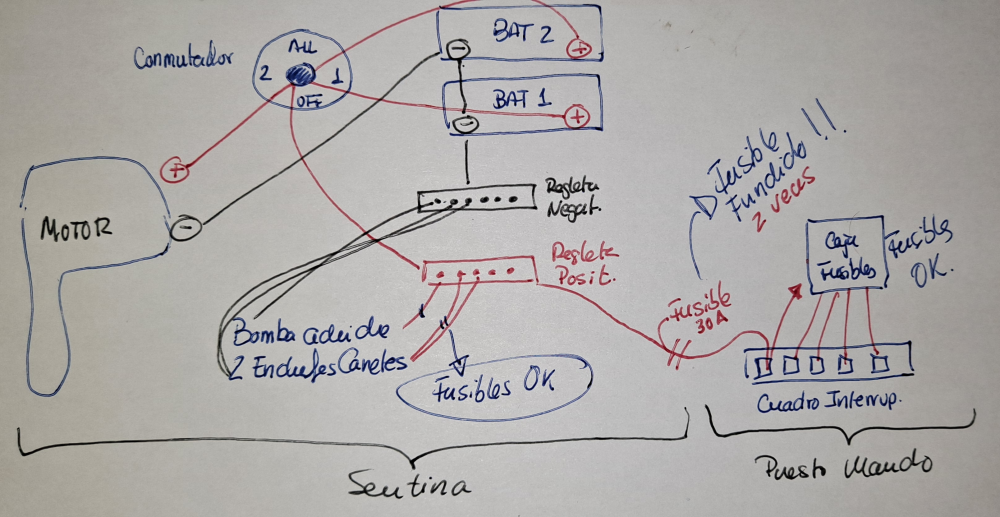 Conmutador
ALL
2
1
OFF
BAT 2
-
+
BAT 1
-
+
+
-
MOTOR
Regleta
Negat.
Regleta
Posit.
Bomba
2 Enchufes Carretes
Fusibles OK
Fusible
30A
Fusible
Fundido!!!
2 veces
Caja
Fusibles
Fusibles
OK.
Cuadro Interrup.
Sentina
Puesto Mando